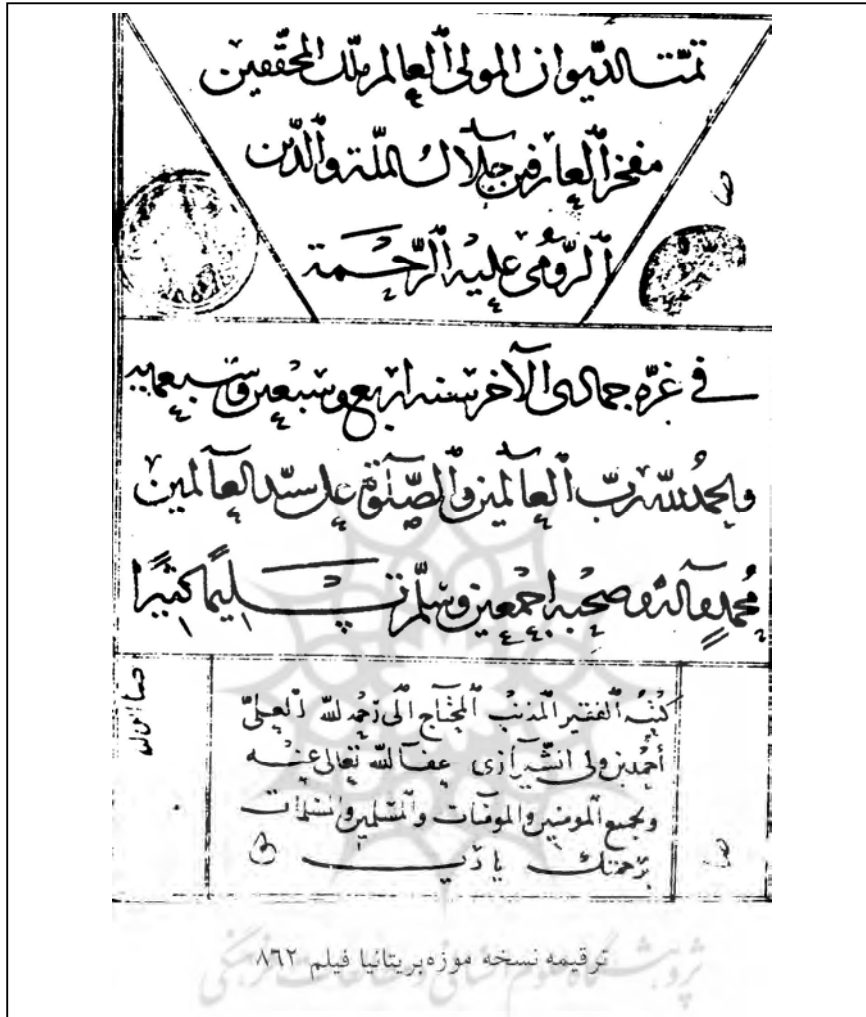 تمّت الدّيوان المولى العالم ملك المحقّقين
مفخر العارفين جلال الملّة والدّين
الرّومى عليه الرّحمة
في غرّه جمادى الآخر سنه اربع وسبعين وسبعمایه
والحمدلله ربّ العالمين والصّلوة على سيّد العالمين
محمدٍ وآله وصحبه اجمعين وسلّم تسليمًا كثيرًا
كتبه الفقير المذنب المحتاج الى رحمه الله العلىّ
أحمد بن ولى الشّيرازى عفا الله تعالى عنه
ولجميع المومنين والمومنات والمسلمين والمسلمات
برحمتك يا ربّ
ترقیمه نسخه موزه بریتانیا فیلم ۸۶۲
پژوهشگاه علوم انسانی و مطالعات فرهنگی